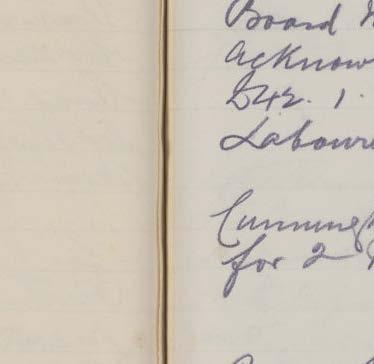 Board
acknow
£42. 1.
Laboure
Cunningh
for 2